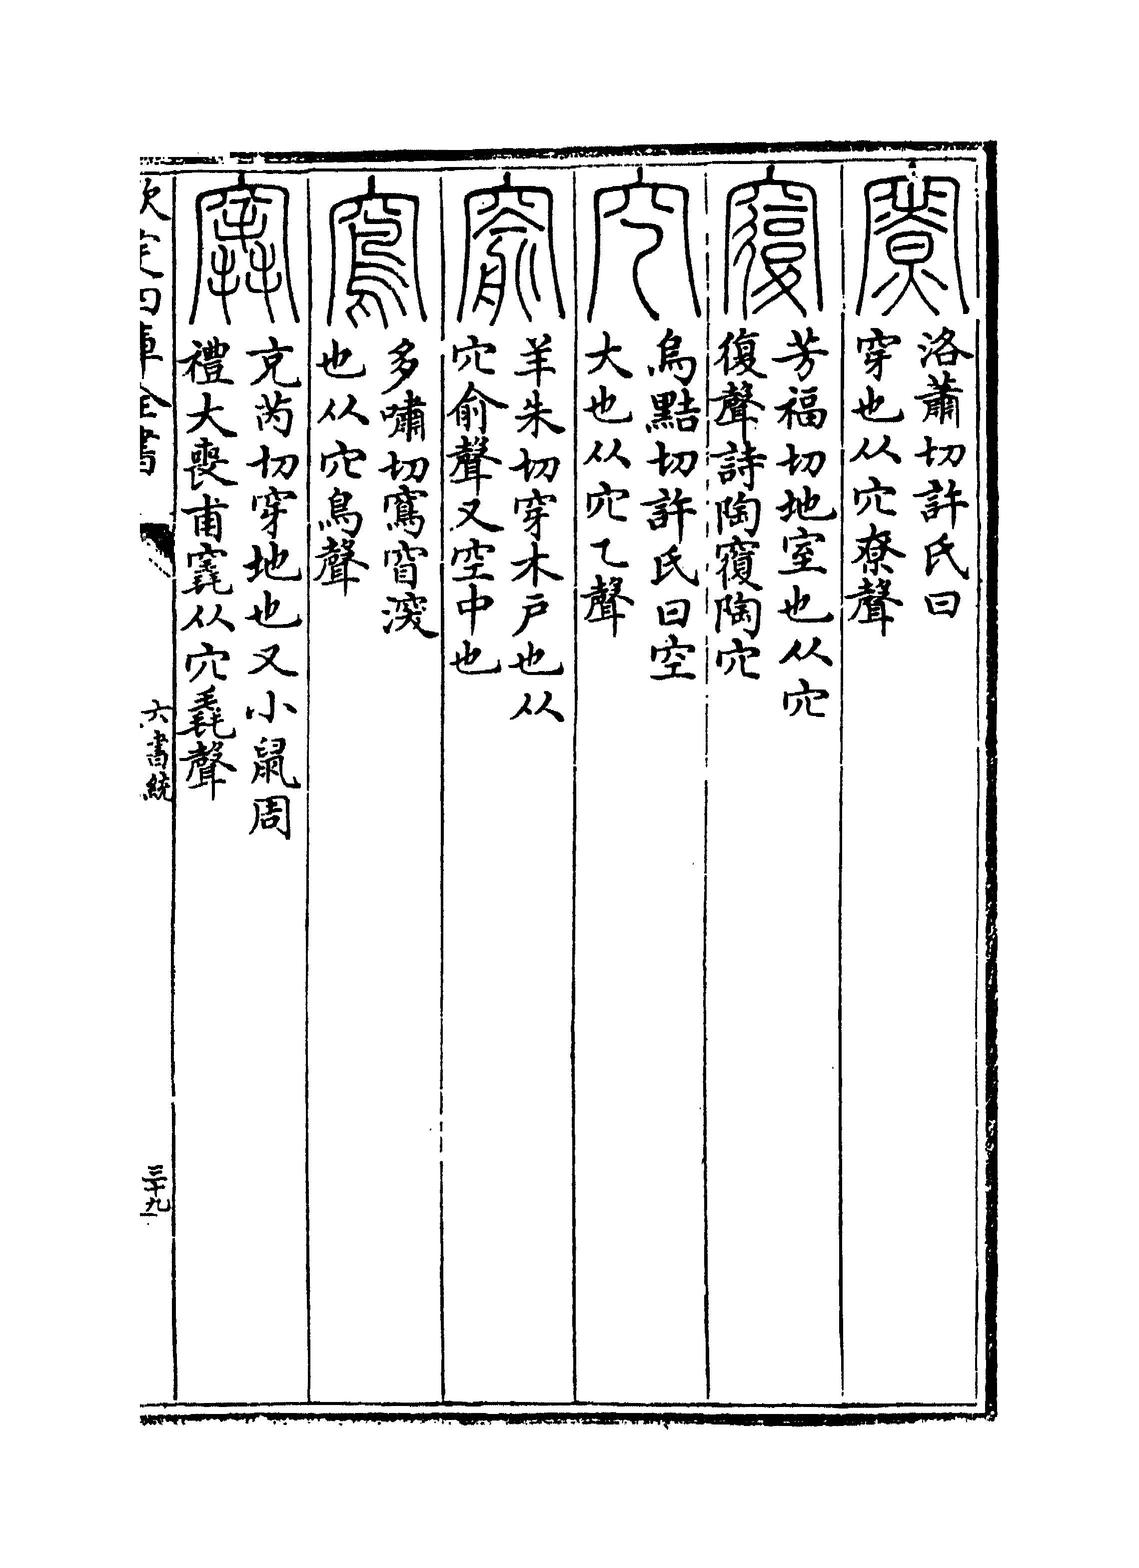 竂
洛蕭切許氏曰
穿也从穴尞聲
𥨍
芳福切地室也从穴
復聲詩陶𥨍陶穴
穵
烏黠切許氏曰空
大也从穴乙聲
窬
羊朱切穿木戶也从
穴俞聲又空中也
窵
多嘯切窵窅深
也从穴鳥聲
竁
充芮切穿地也又小鼠周
禮大喪甫竁从穴毳聲
欽定四庫全書
六書統
三十九